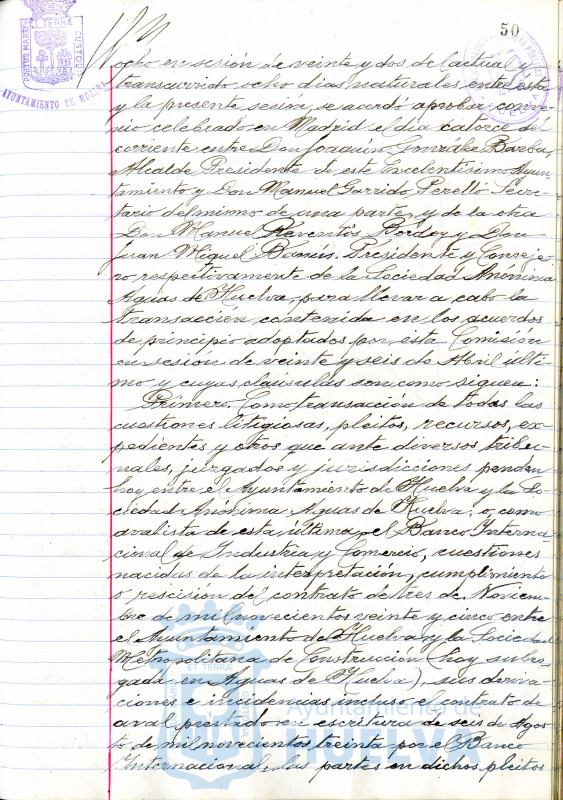 50
PORTUS MARIS ET TERRAE CUSTODIA
AYUNTAMIENTO DE HUELVA
ocho en sesión de veinte y dos de lactual y
transcurrido ocho dias naturales entre esta
y la presente sesion, se acordó aprobar conve-
nio celebrado en Madrid el día catorce del
corriente entre Don Joaquin Gonzalez Barba,
Alcalde Presidente de este Excelentísimo Ayun-
tamiento y Don Manuel Garrido Perelló Secre-
tario del mismo de una parte, y de la otra
Don Manuel Raventós Bordoy y Don
Juan Miguel Banús, Presidente y Conseje-
ro respectivamente de la Sociedad Anónima
Aguas de Huelva, para llevar a cabo la
transacción contenida en los acuerdos
de principio adoptados por esta Comisión
en sesión de veinte y seis de Abril últi-
mo y cuyas cláusulas son como siguen:
Primero. Como transacción de todas las
cuestiones litigiosas, pleitos, recursos, ex-
pedientes y otros que ante diversos tribu-
nales, juzgados y jurisdicciones penden
hoy entre el Ayuntamiento de Huelva y la So-
ciedad Anónima Aguas de Huelva, o, como
avalista de esta última, el Banco Interna-
cional de Industria y Comercio, cuestiones
nacidas de la interpretación, cumplimiento
o rescisión del contrato de tres de Noviem-
bre de mil novecientos veinte y cinco entre
el Ayuntamiento de Huelva y la Sociedad
Metropolitana de Construcción (hoy subro-
gada en Aguas de Huelva), sus deriva-
ciones e incidencias incluso el contrato de
aval prestado en escritura de seis de Agos-
to de mil novecientos treinta por el Banco
Internacional, las partes en dichos pleitos
Ayuntamiento de
HUELVA